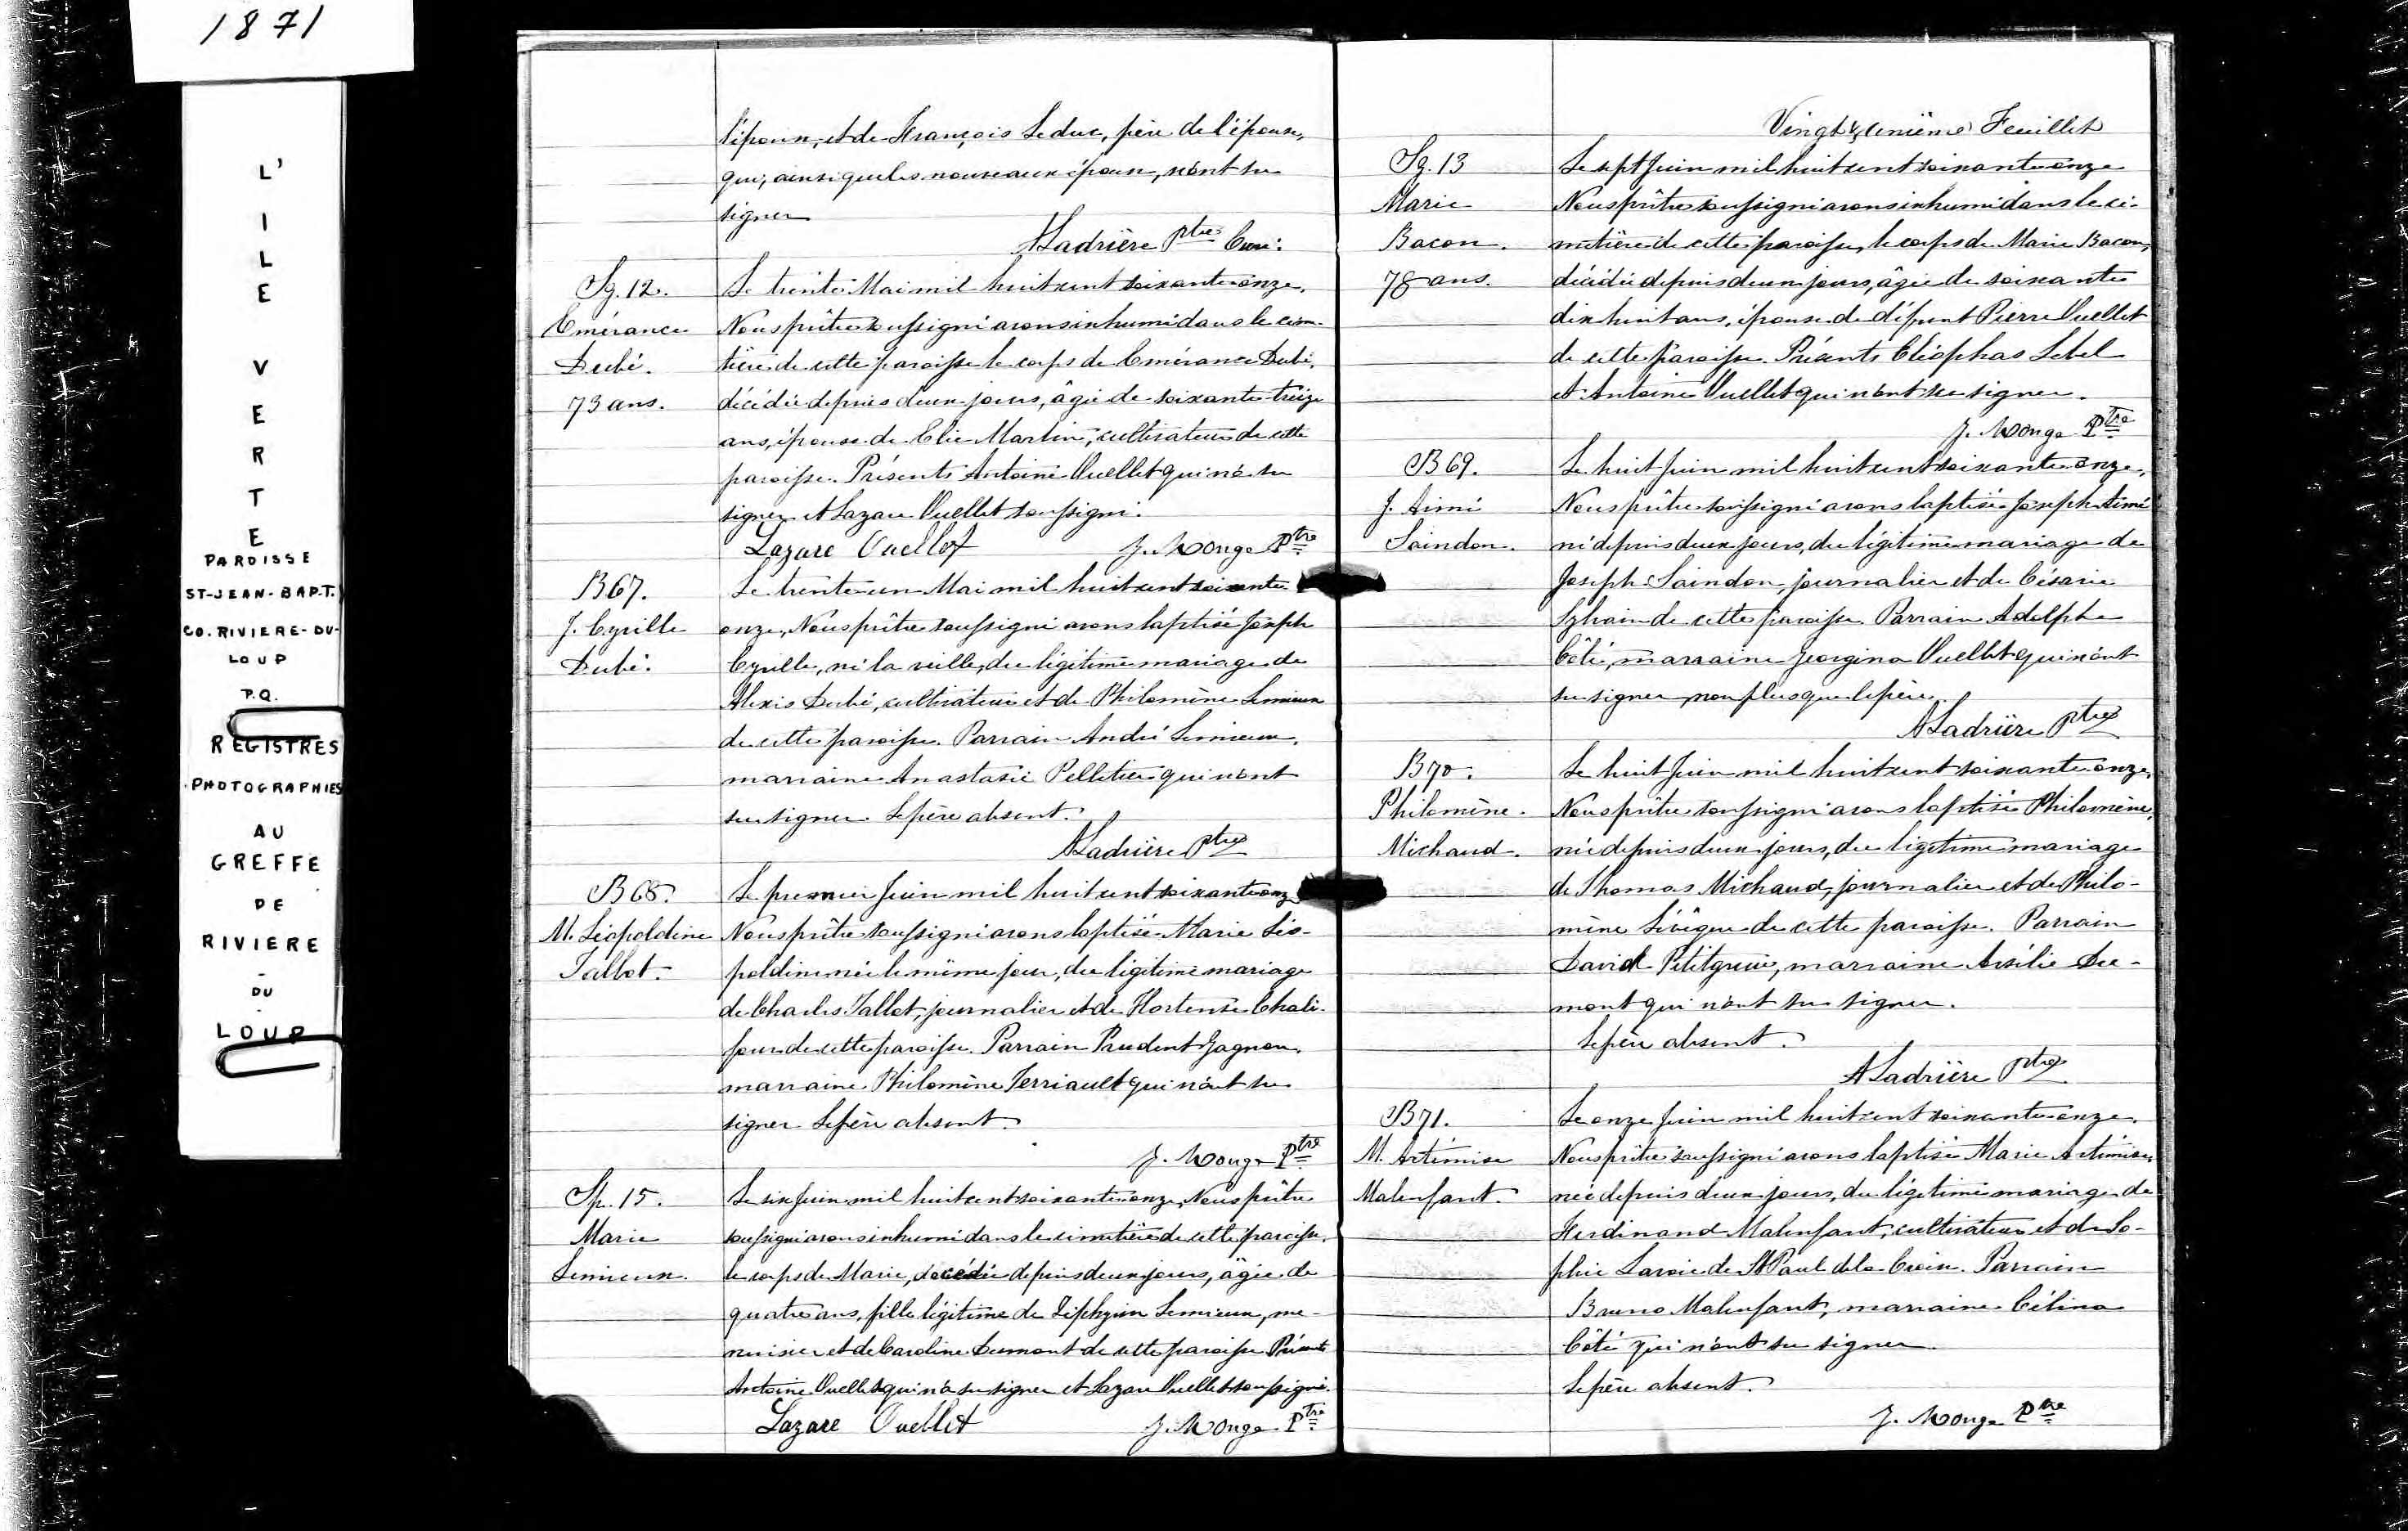 1871
L'
I
L
E
V
E
R
T
E
PAROISSE
ST-JEAN-BAPT.
CO. RIVIERE-DU-
LOUP
P.Q.
REGISTRES
PHOTOGRAPHIES
AU
GREFFE
DE
RIVIERE
-
DU
-
LOUP
l'époux, et de François Leduc, père de l'épouse,
qui, ainsi que les nouveaux époux, n'ont su
signer
ALadrière Ptre Curé.
Sg. 12.
Emérance
Dubé.
73 ans.
Le trente Mai mil huit cent soixante onze,
Nous prêtre soussigné avons inhumé dans le cim-
tière de cette paroisse le corps de Emérance Dubé,
décédée depuis deux jours, âgée de soixante treize
ans, épouse de Elie Martin, cultivateur de cette
paroisse. Présents Antoine Ouellet qui n'a su
signer et Lazare Ouellet soussigné.
Lazare Ouellet J. Wonge Ptre
B 67.
J. Cyrille
Dubé.
Le trente un Mai mil huit cent soixante
onze, Nous prêtre soussigné avons baptisé Joseph
Cyrille, né la veille, du légitime mariage de
Alexis Dubé, cultivateur et de Philomène Lemieux
de cette paroisse. Parrain André Lemieux,
marraine Anastasie Pelletier qui n'ont
su signer. Le père absent.
ALadrière Ptre
B 68.
M. Léopoldine
Talbot.
Le premier Juin mil huit cent soixante onze
Nous prêtre soussigné avons baptisé Marie Léo-
poldine née le même jour, du légitime mariage
de Charles Talbot, journalier et de Hortense Chali-
four de cette paroisse. Parrain Prudent Gagnon,
marraine Philomène Terriault qui n'ont su
signer. Le père absent.
J. Wonge Ptre
Sp. 15.
Marie
Lemieux.
Le six Juin mil huit cent soixante onze, Nous prêtre
soussigné avons inhumé dans le cimetière de cette paroisse,
le corps de Marie, décédée depuis deux jours, âgée de
quatre ans, fille légitime de Zéphyrin Lemieux, me-
nuisier et de Caroline Dumont de cette paroisse Présents
Antoine Ouellet qui n'a su signer et Lazare Ouellet soussigné.
Lazare Ouellet J. Wonge Ptre
Vingt & unième Feuillet
Sg. 13
Marie
Bacon.
78 ans.
Le sept Juin mil huit cent soixante onze
Nous prêtre soussigné avons inhumé dans le ci-
metière de cette paroisse, le corps de Marie Bacon,
décédée depuis deux jours, âgée de soixante
dix huit ans, épouse de défunt Pierre Ouellet
de cette paroisse. Présents Cléophas Lebel
et Antoine Ouellet qui n'ont su signer.
J. Wonge Ptre
B 69.
J. Aimé
Saindon.
Le huit Juin mil huit cent soixante onze,
Nous prêtre soussigné avons baptisé Joseph Aimé
né depuis deux jours, du légitime mariage de
Joseph Saindon, journalier et de Césarie
Sylvain de cette paroisse. Parrain Adolphe
Côté, marraine Georgina Ouellet qui n'ont
su signer non plus que le père.
ALadrière Ptre
B 70.
Philomène.
Michaud.
Le huit Juin mil huit cent soixante onze,
Nous prêtre soussigné avons baptisé Philomène,
née depuis deux jours, du légitime mariage
de Thomas Michaud, journalier et de Philo-
mène Lévêque de cette paroisse. Parrain
David Petitgrew, marraine Arsélie Du-
mont qui n'ont su signer.
Le père absent.
ALadrière Ptre
B 71.
M. Artémise
Malenfant.
Le onze Juin mil huit cent soixante onze,
Nous prêtre soussigné avons baptisé Marie Artémise,
née depuis deux jours, du légitime mariage de
Ferdinand Malenfant, cultivateur et de So-
phie Lavoie de St Paul de la Croix. Parrain
Bruno Malenfant, marraine Célina
Côté qui n'ont su signer.
Le père absent.
J. Wonge Ptre